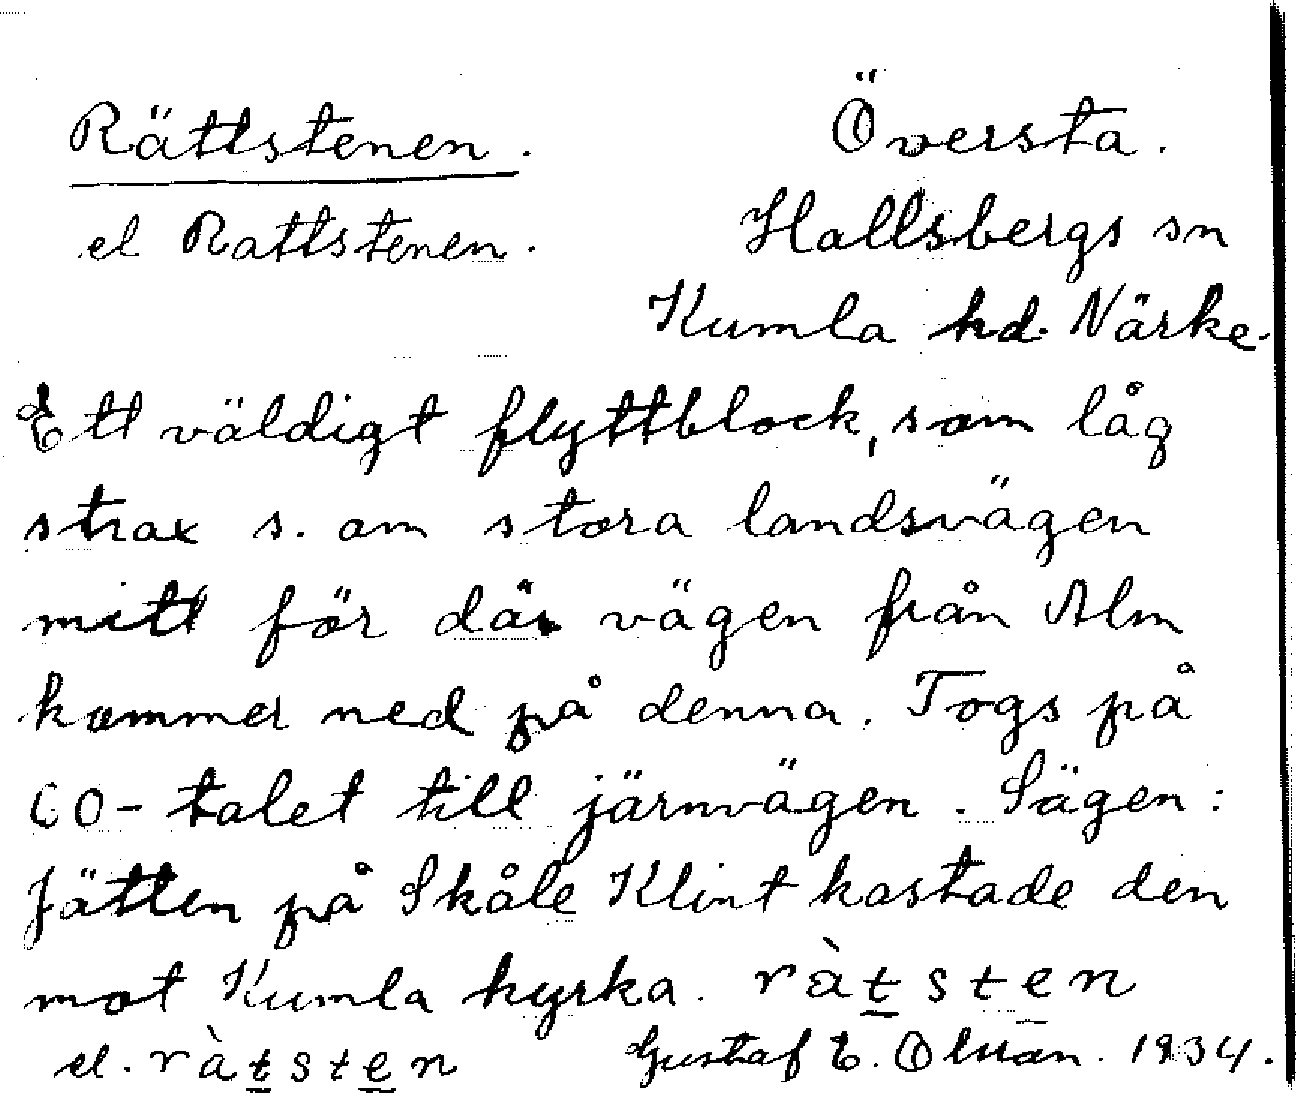 Rättstenen. Översta.
el Rattstenen. Hallsbergs sn
Kumla hd. Närke.
Ett väldigt flyttblock, som låg
strax s. om stora landsvägen
mitt för där vägen från Alm
kommer ned på denna. Togs på
60-talet till järnvägen. Sägen:
Jätten på Skåle Klint kastade den
mot Kumla kyrka. ràtsten
el. ràtsten Gustaf E. 1934.